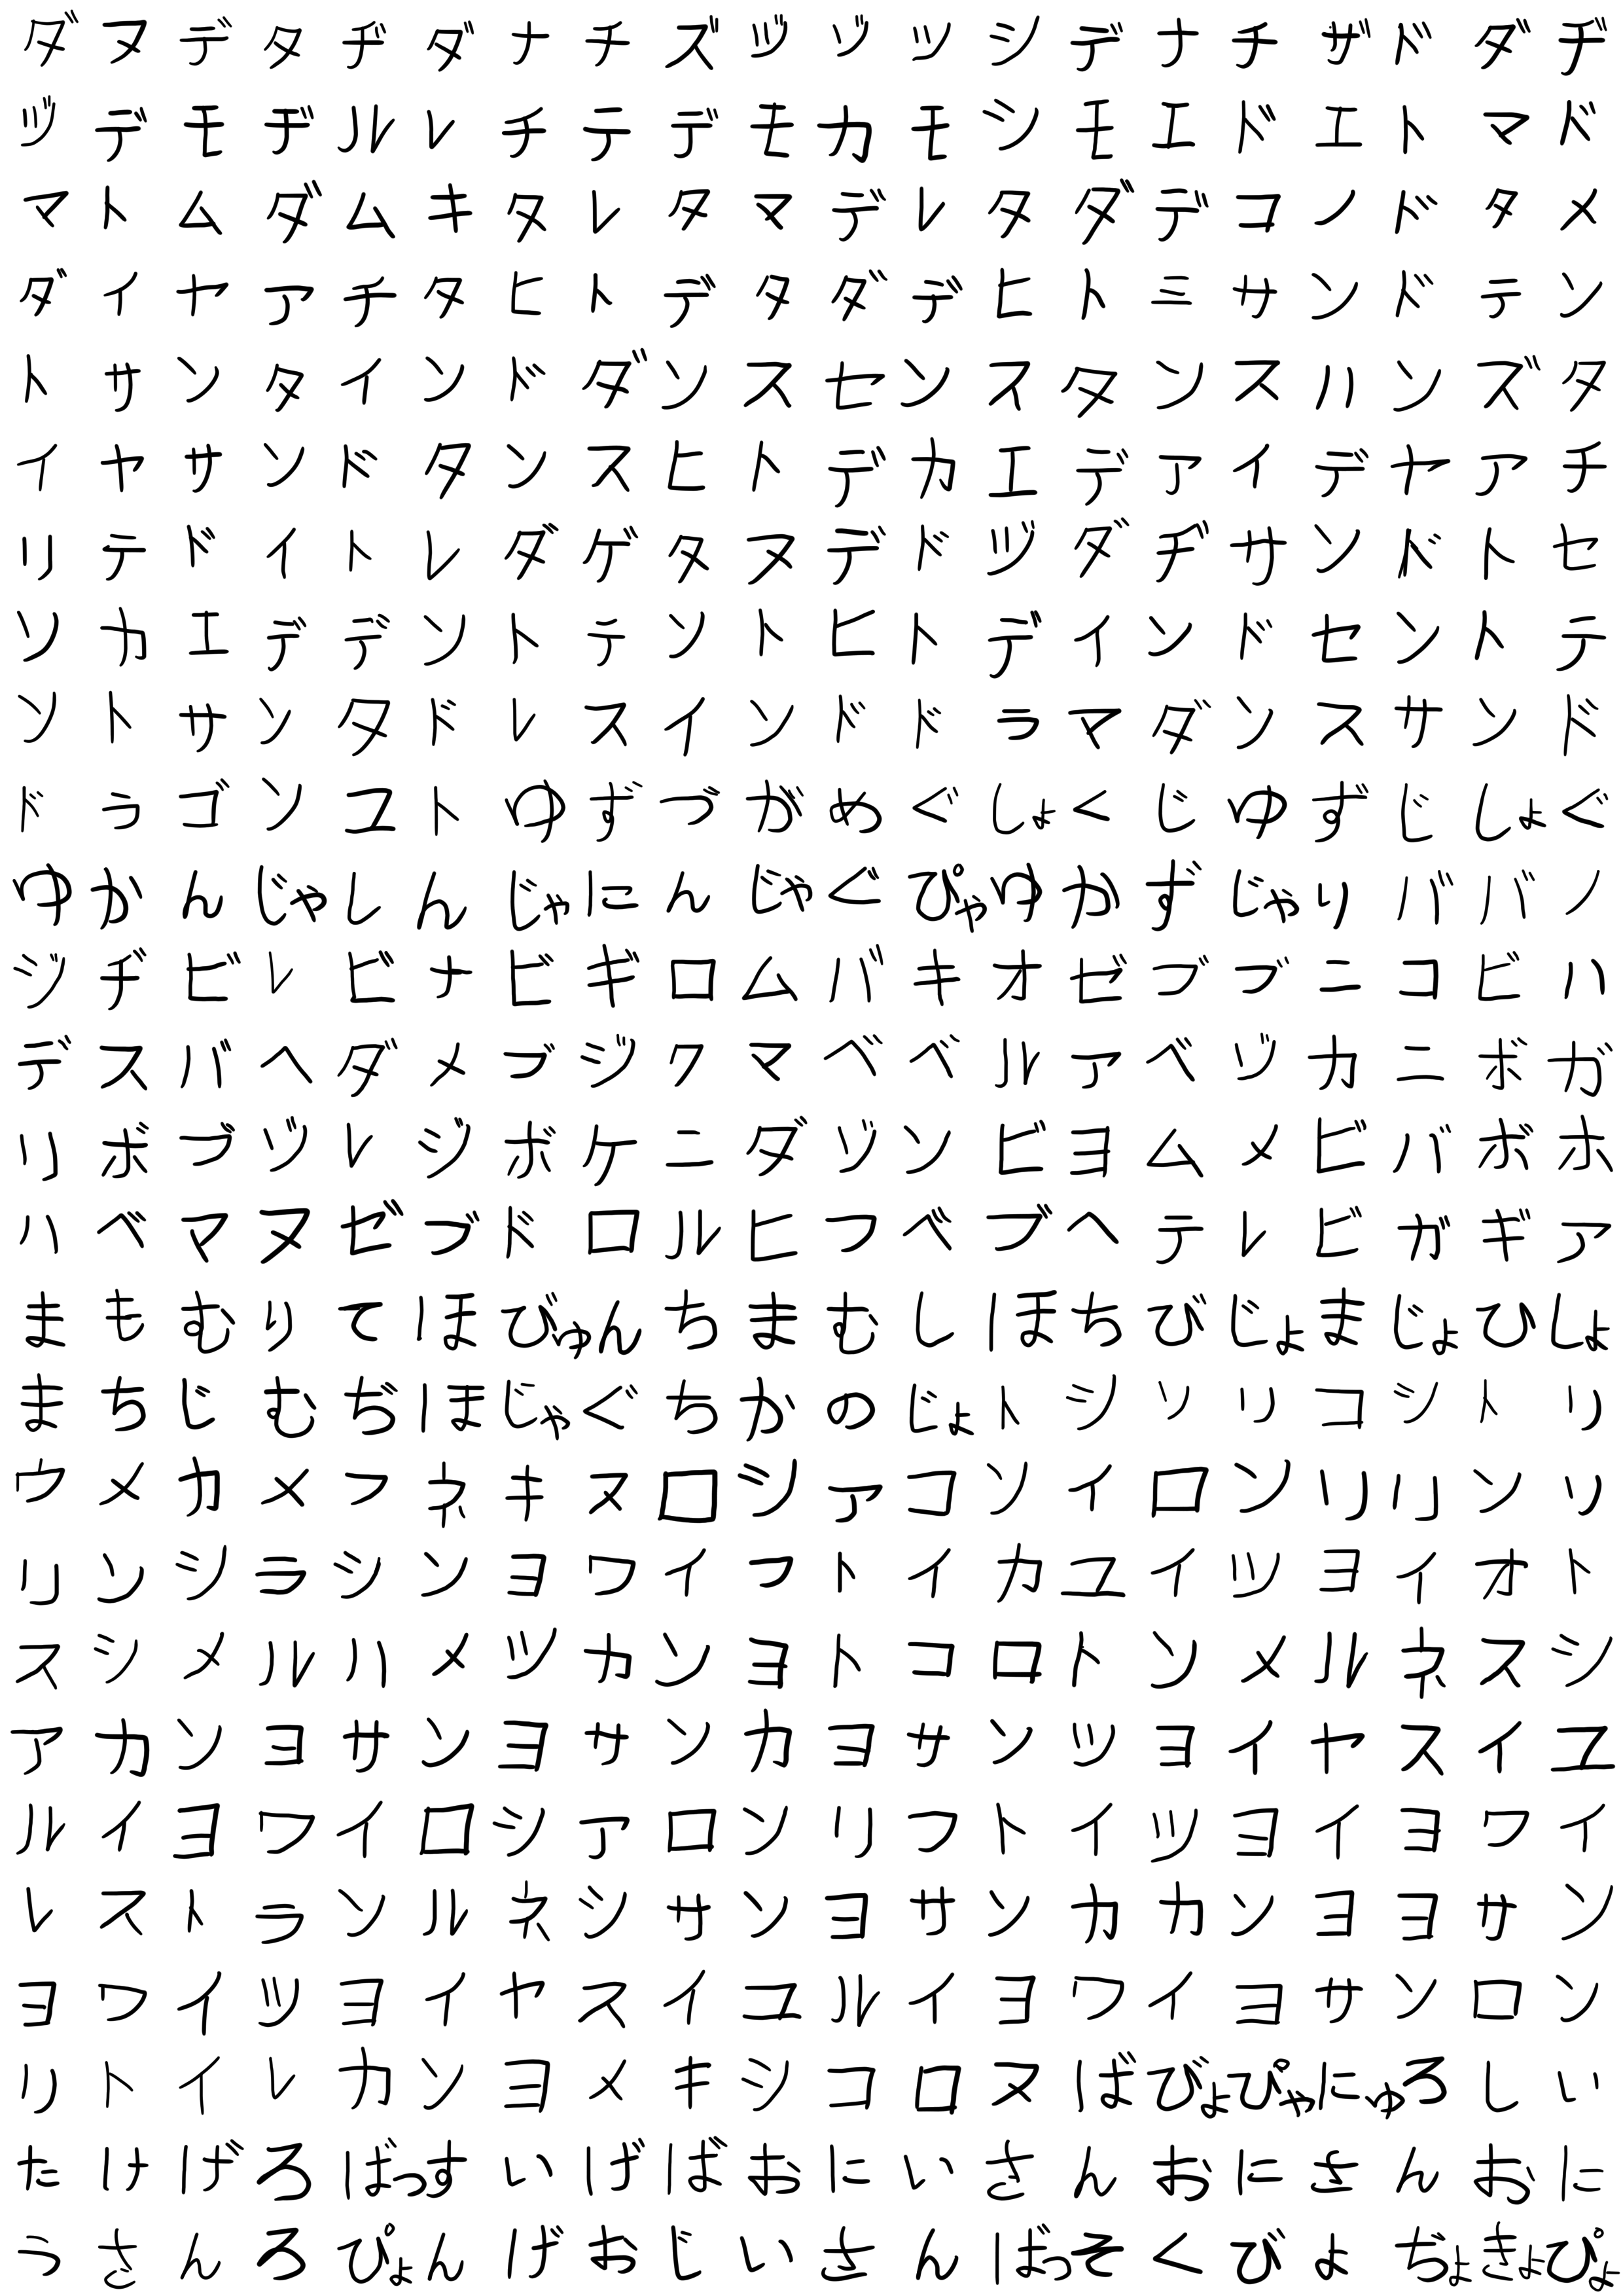 ダヌデタヂダナチズヅヅッシデナチザドダヂ
ヅデモヂルレチテデモカモシモエドエトマド
マトムダムキタレタマデレタダデコノドタメ
ダイヤアチタヒトデタダデヒトミサンドテン
トサンタインドダンスセンスタンスハンズタ
イヤサンドタンスヒトデカエデアイデヤアチ
リテドイトレダゲタヌデドヅダヂサンドトセ
ソカエデデントテントヒトデインドセントテ
ントサンタドレスインドドラマダンスサンド
ドラゴンユトゆずづがめぐしょくじゆずじしょぐ
ゆかんじゃしんじゃにんじゃぐぴゃゆかずじゃりババノ
ジヂビレビナビギロムバキオゼブブニコビハ
デスバヘダメブジクマベベルアベゾカニボガ
リボブゾレジボケニダゾンビヨムメビバボホ
ハベマヌゼブドロルヒフベブヘテレビガギア
まもむりてほびゅんちまむしほちびじょまじょひしょ
まちじむぢほじゃぐちかのじょトシソリコシトリ
ウメカメフネキヌロシアコンイロンリリンリ
リンシラシンヨワイフトイカユイツヨイオト
スシメルハメツカンヨトコロトンメルネスシ
アカンヨサンヨサンカヨサンツヨイヤスイユ
ルイヨワイロシアロンリフトイツヨイヨワイ
レストランルネシサンヨサンカカンヨヨサン
ヨワイツヨイヤスイユルイヨワイヨサンロン
リトイレカンヨメキシコロヌばびょぴゃにゅろしい
たけげろばっすいげばおにいさんおにさんおに
うさんろぴょんげおじいさんばっそくびょぢょきょぴょ